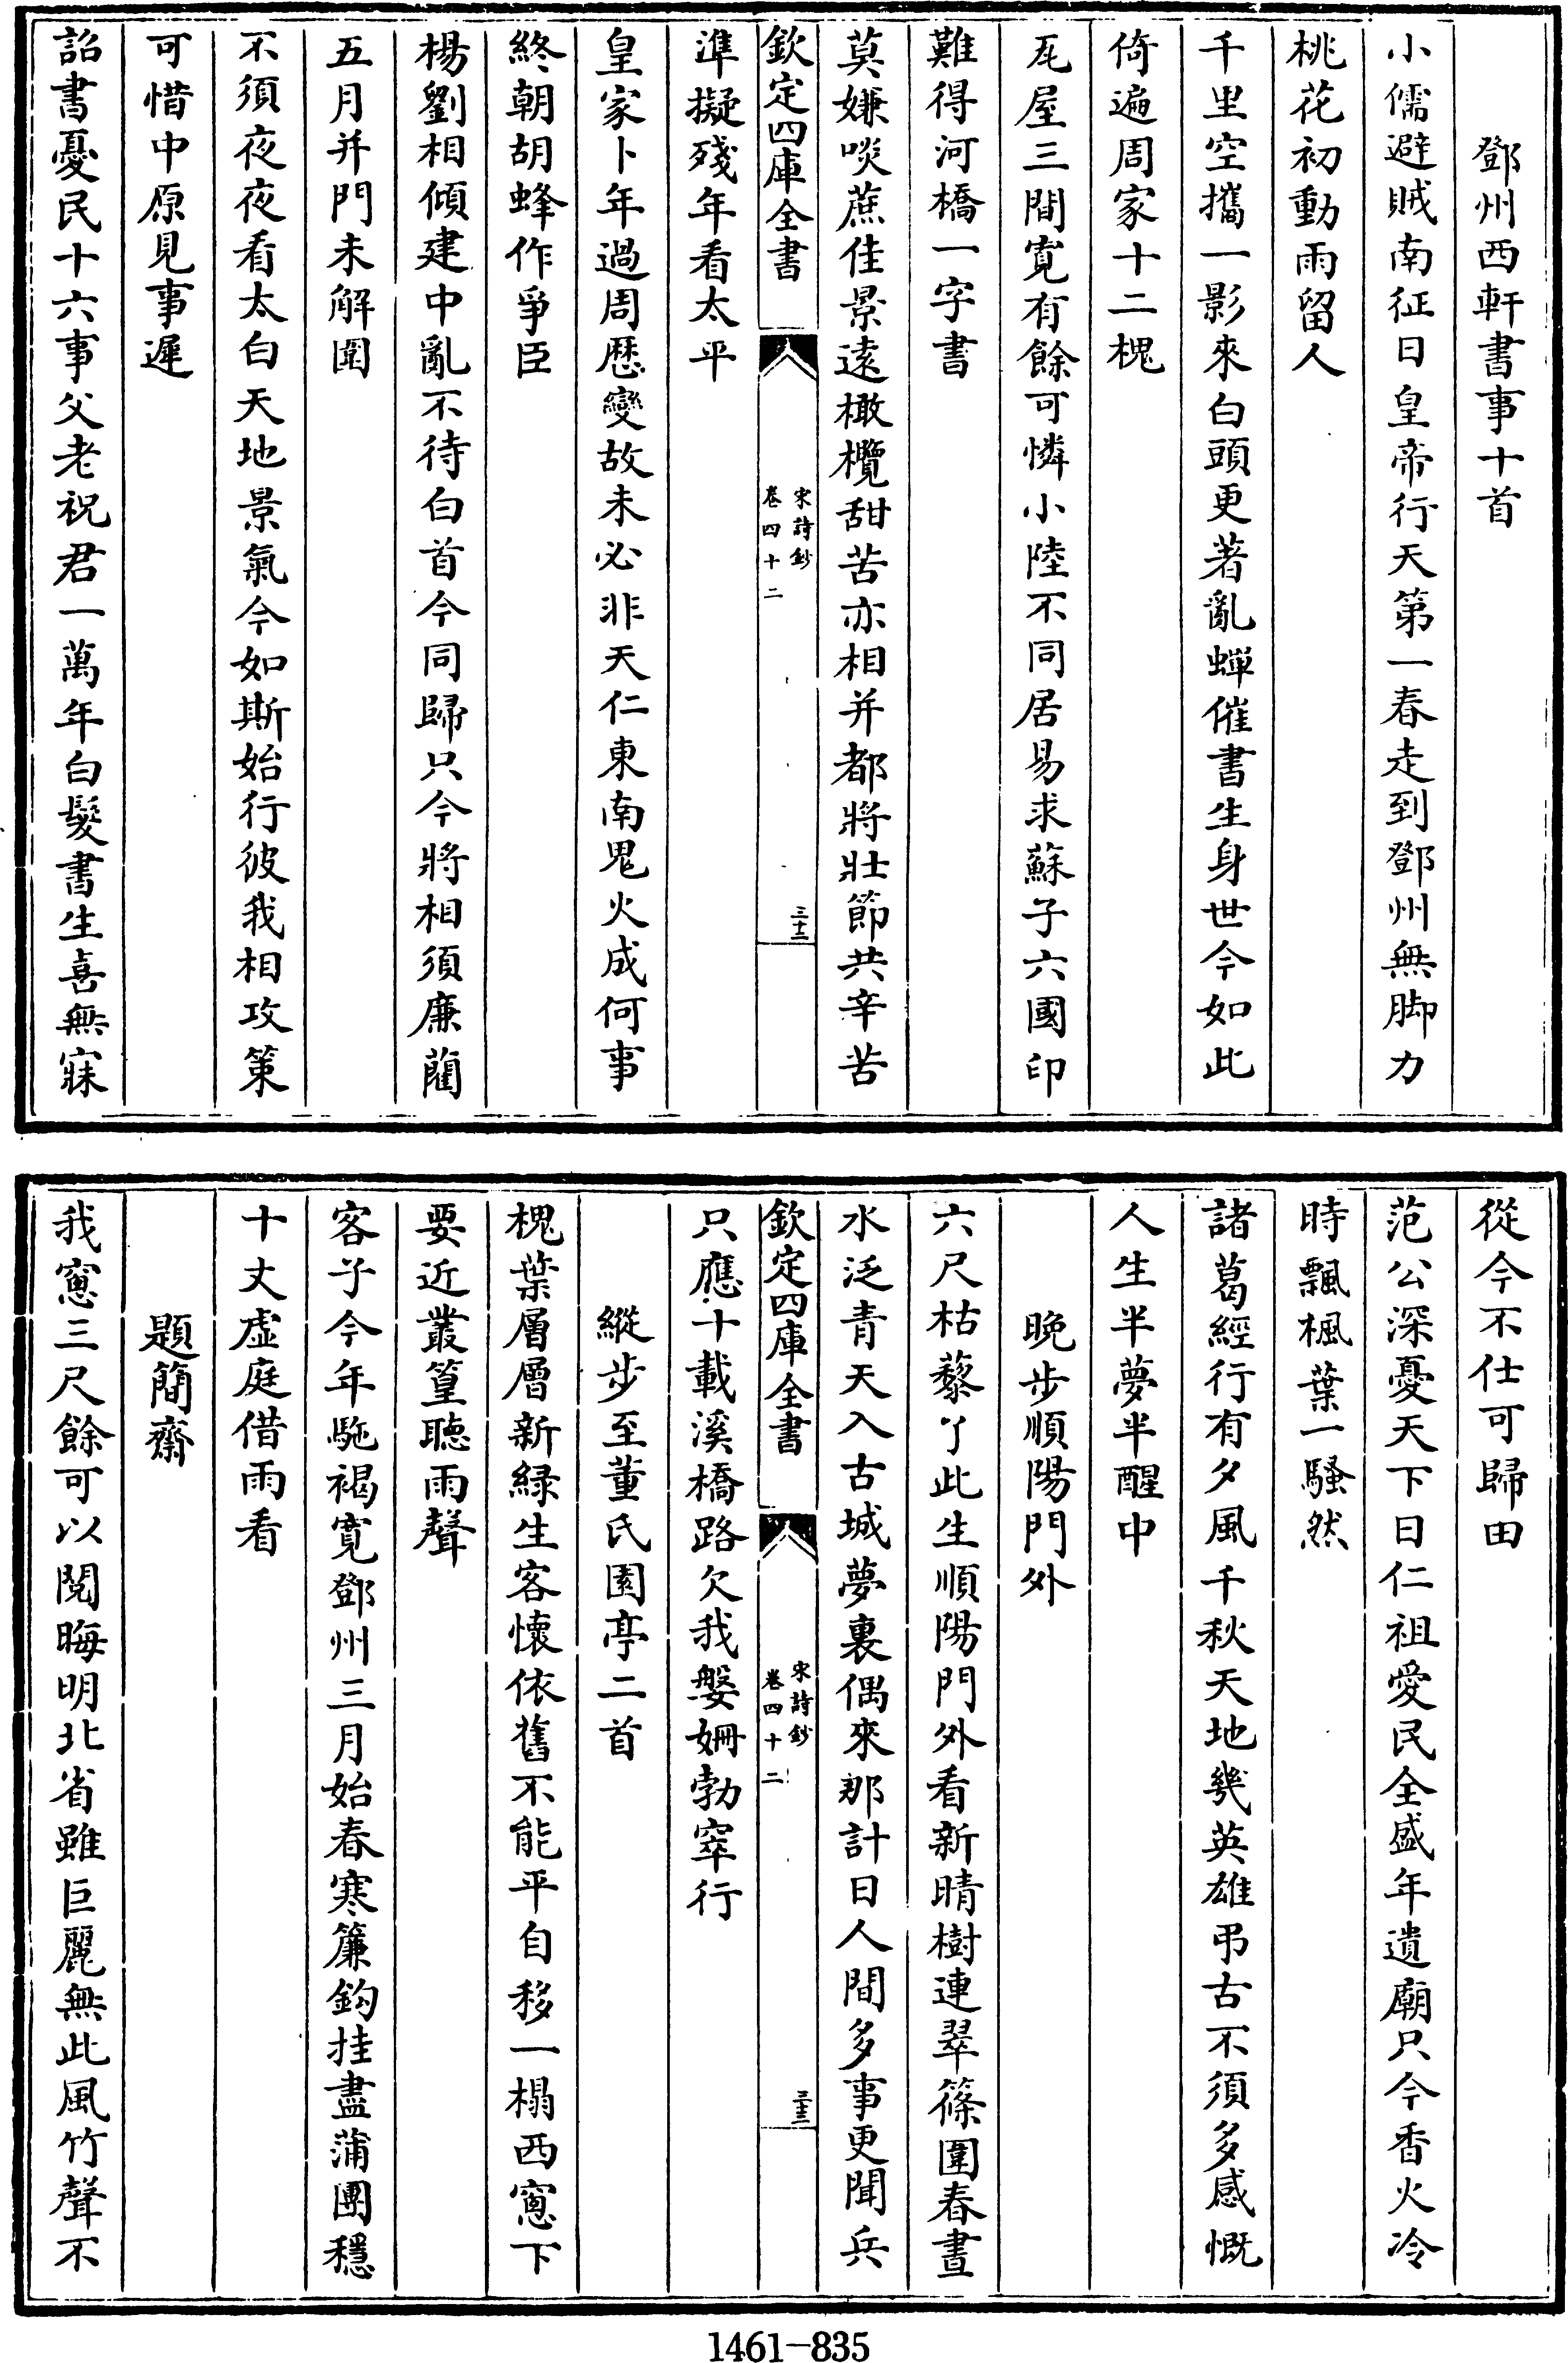 鄧州西軒書事十首
小儒避賊南征日皇帝行天第一春走到鄧州無脚力
桃花初動雨留人
千里空攜一影來白頭更著亂蟬催書生身世今如此
倚遍周家十二槐
瓦屋三間寬有餘可憐小陸不同居易求蘇子六國印
難得河橋一字書
莫嫌啖蔗佳景遠橄欖甜苦亦相并都將壯節共辛苦
欽定四庫全書
宋詩鈔
卷四十二
三十二
準擬殘年看太平
皇家卜年過周厯變故未必非天仁東南鬼火成何事
終朝胡蜂作爭臣
楊劉相傾建中亂不待白首今同歸只今將相須廉藺
五月并門未解圍
不須夜夜看太白天地景氣今如斯始行彼我相攻策
可惜中原見事遲
詔書憂民十六事父老祝君一萬年白髮書生喜無寐
從今不仕可歸田
范公深憂天下日仁祖愛民全盛年遺廟只今香火冷
時飄楓葉一騷然
諸葛經行有夕風千秋天地幾英雄弔古不須多感慨
人生半夢半醒中
晩步順陽門外
六尺枯藜了此生順陽門外看新晴樹連翠篠圍春晝
水泛青天入古城夢裏偶來那計日人間多事更聞兵
欽定四庫全書
宋詩鈔
卷四十二
三十三
只應十載溪橋路欠我媻姍勃窣行
縱步至董氏園亭二首
槐葉層層新緑生客懷依舊不能平自移一榻西窻下
要近叢篁聽雨聲
客子今年駞褐寛鄧州三月始春寒簾鈎挂盡蒲團穩
十丈虛庭借雨看
題簡齋
我窻三尺餘可以閱晦明北省雖巨麗無此風竹聲不
1461-835